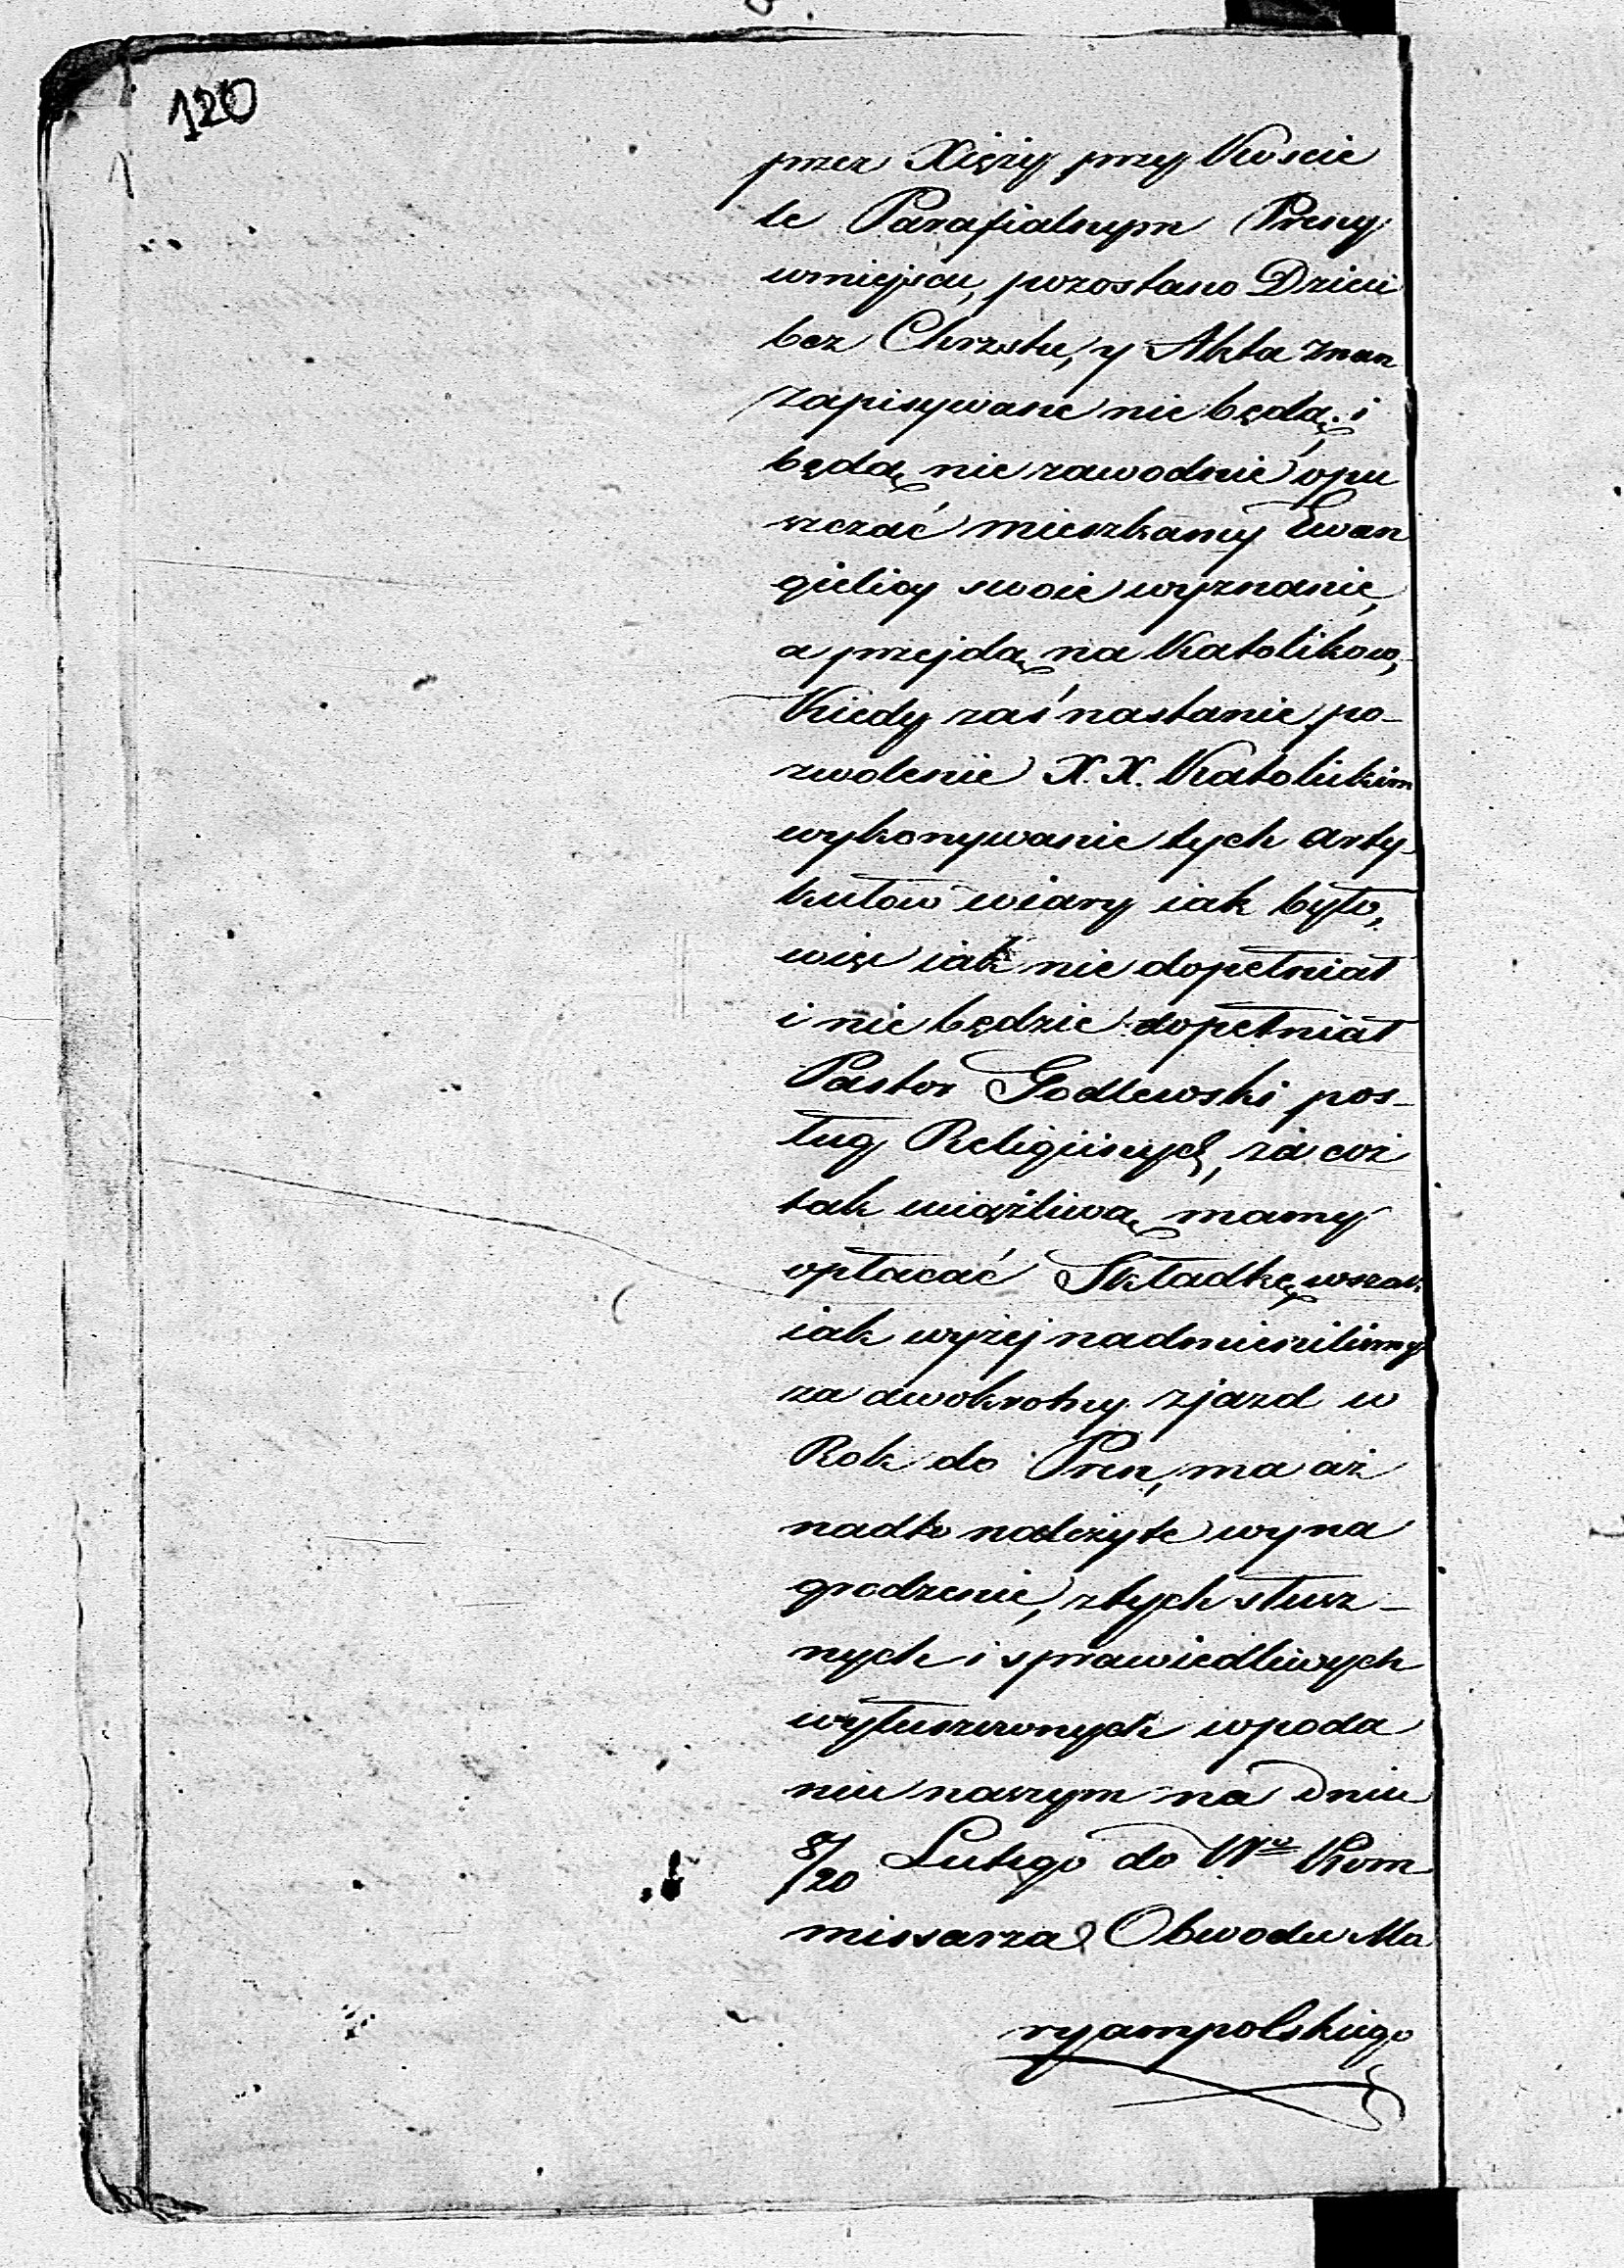 120
przez Xięży przy Koscie
le Parafialnym Preny
wmiejscu, pozostano Dzieci
bez Chrzstu, y Akta znan
zapisywane nie będą i
będą nie zawodnie opu
szczać mieszkamy Ewan
gielicy swoie wyznanie,
a przejdą na Katolikow,
Kiedy zaś nastanie po-
zwolenie X. X. Katolickim
wykonywanie tych arty
kułow wiary iak było,
więc iak nie dopełniał
i nie będzie dopełniał
Pastor Godlewski pos-
ług Religiinych, za coż
tak uciążliwą mamy
opłacać Składkę, wszak
iak wyżej nadmieniliśmy
za dwokrotny zjazd w
Rok do Pren, ma aż
nadto należyte wyna
grodzenie, ztych słusz-
nych i sprawiedliwych
wyłuszczonych wpoda
niu naszym na dniu
8/20 Lutego do Wgo Kom
missarza Obwodu Ma
ryampolskiego